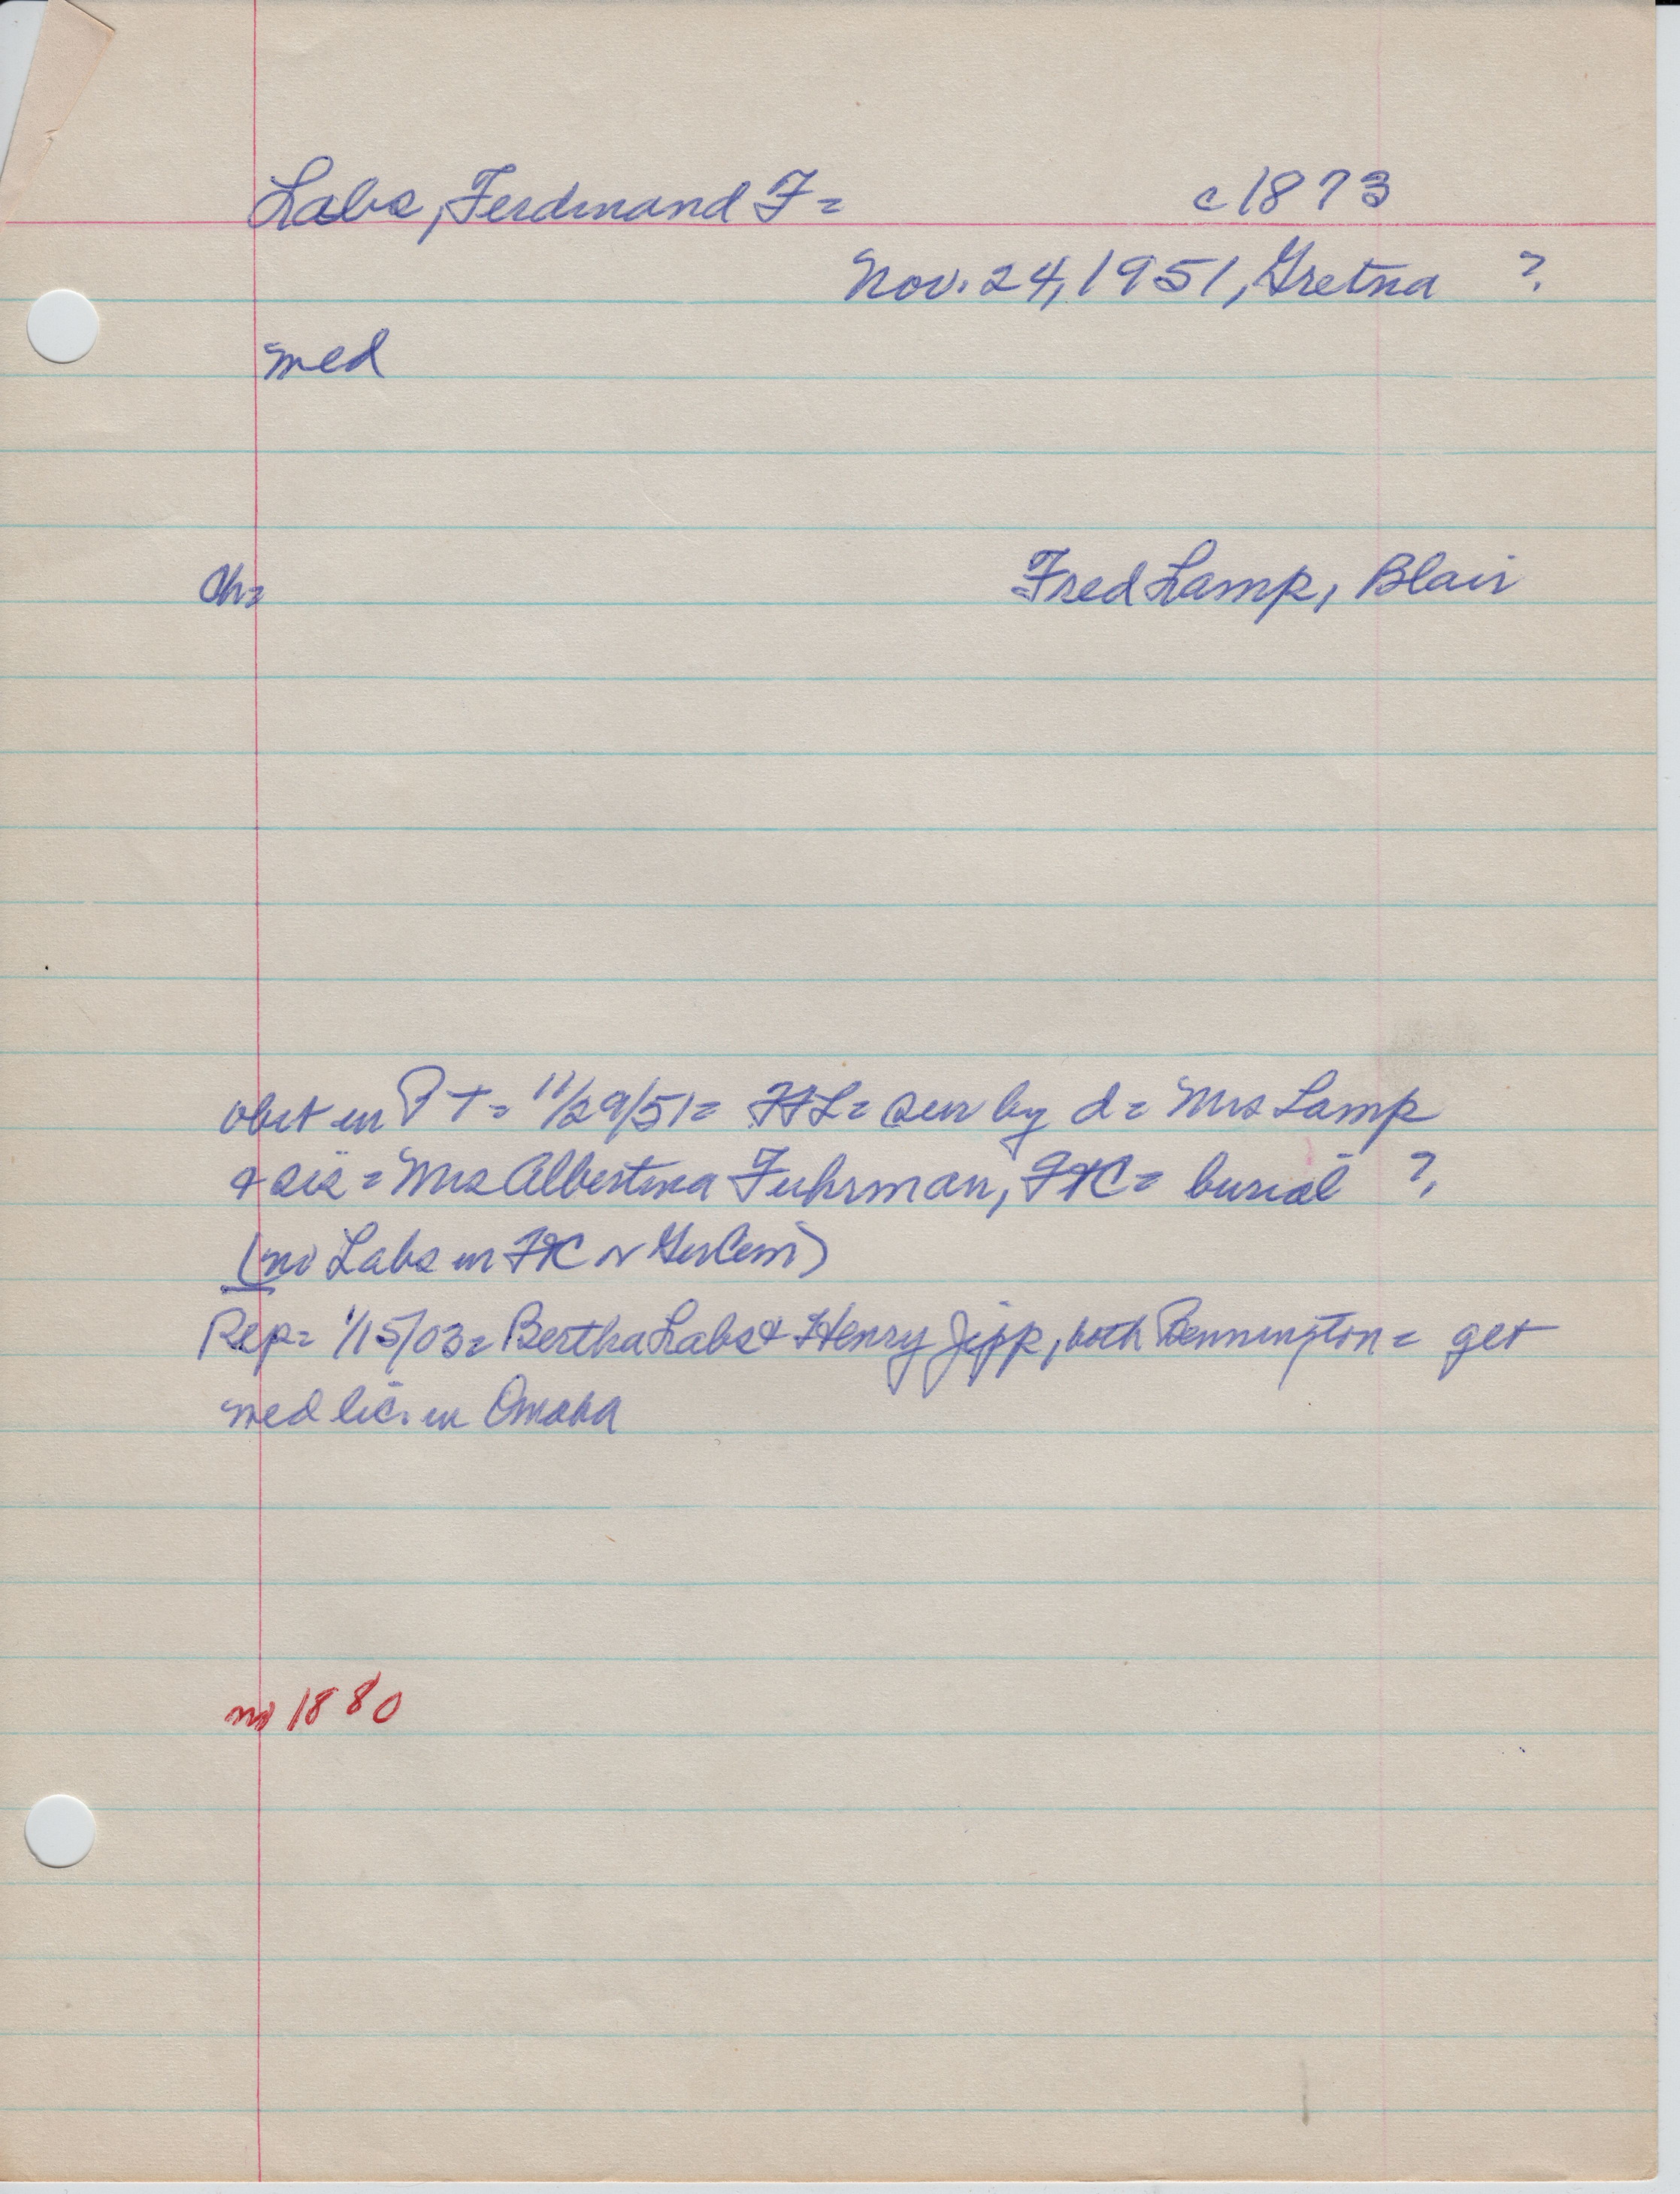 Labs, Ferdinand F= c1873
Nov. 24, 1951, Gretna ?
med
Ch=
Fred Lamp, Blair
obit in PT= 11/29/51= = sur by d= Mrs Lamp
& sis= Mrs Albertina Fuhrman, FtC= burial ?
(no Labs in FtC or Ger Cem)
Rep= 1/15/03= Bertha Labs & Henry Jipp, both Bennington= get
med lic. in Omaha
no 1880